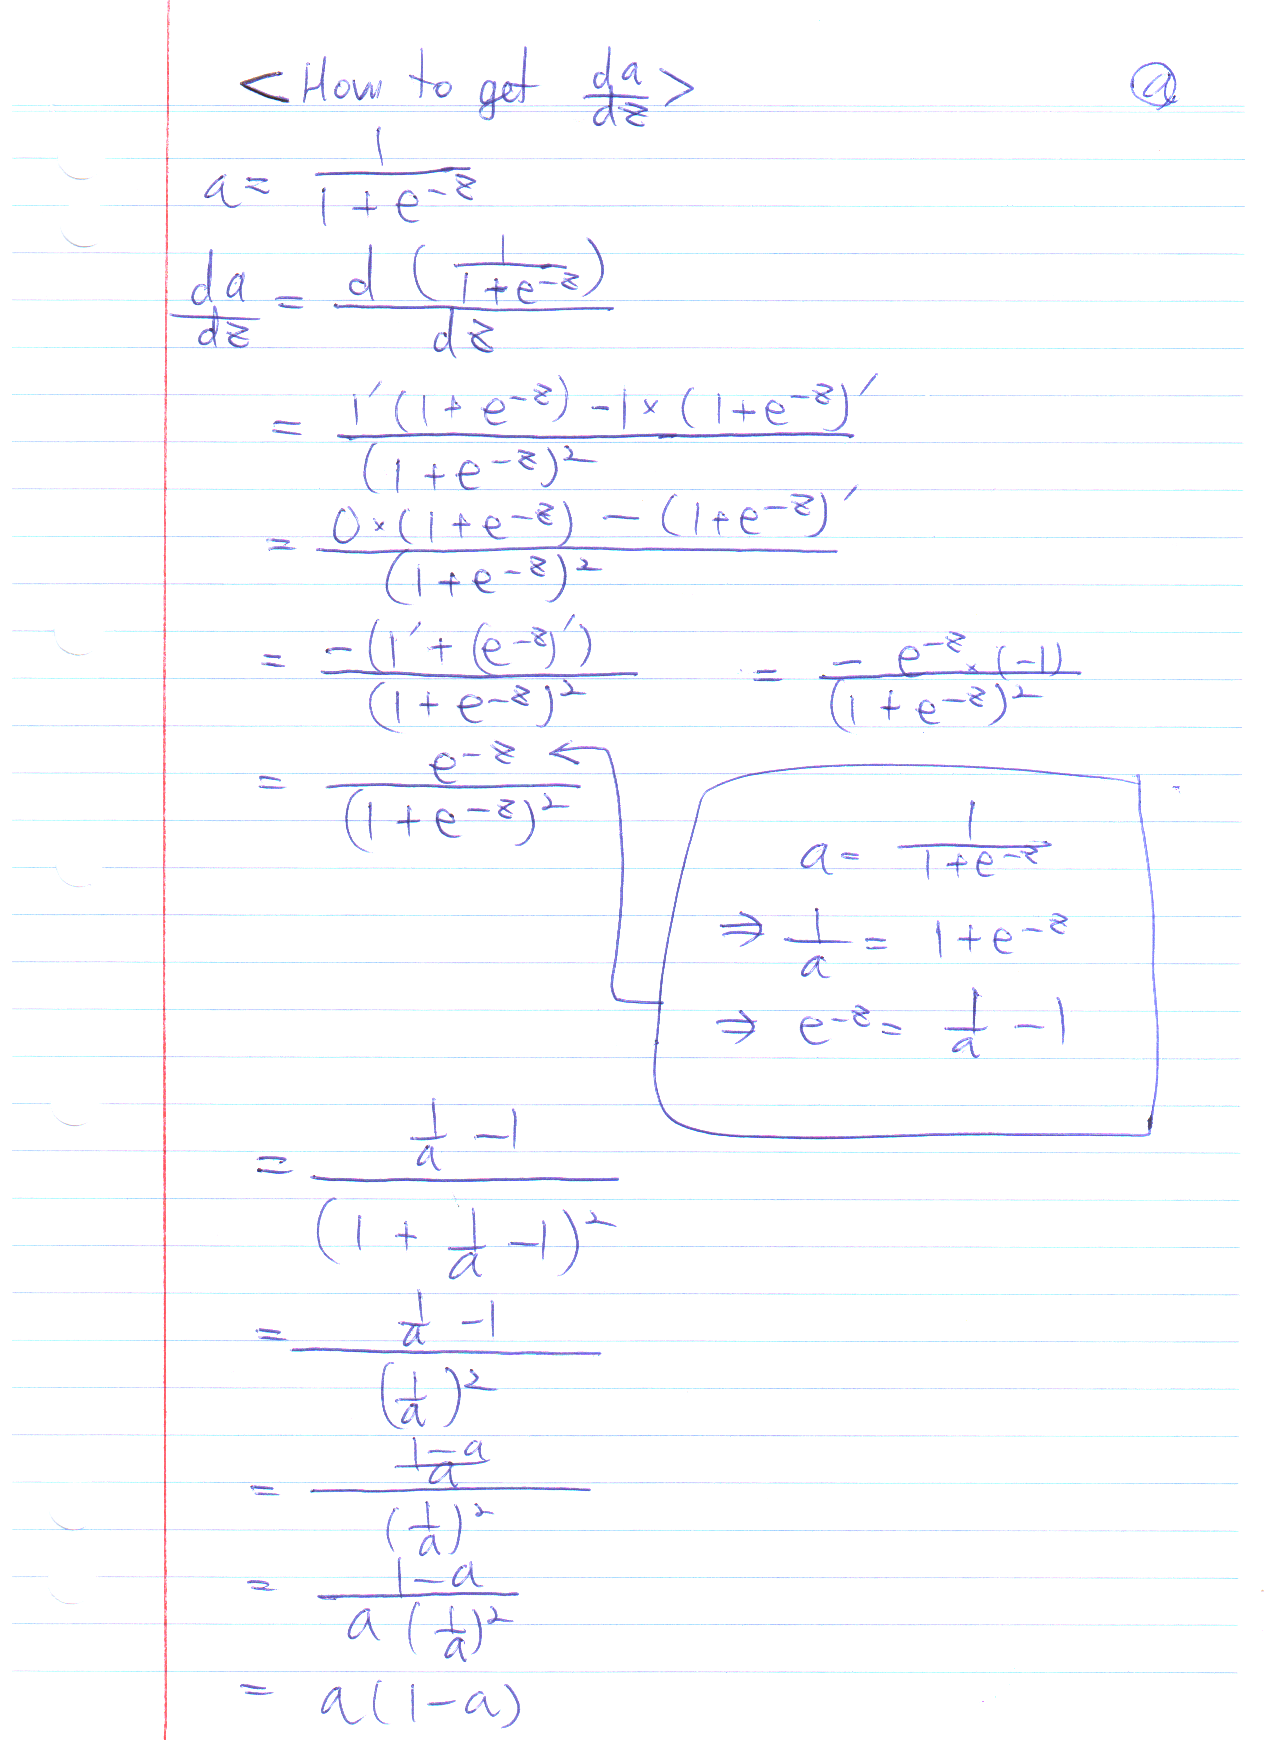 < How to get da/dz > ⓐ
a = 1/(1 + e^-z)
da/dz = d (1/(1+e^-z))/dz
= (1′(1 + e^-z) - 1 × (1+e^-z)′)/(1 + e^-z)²
= (0 × (1 + e^-z) - (1+e^-z)′)/(1+e^-z)²
= -(1′ + (e^-z)′)/(1 + e^-z)² = - e^-z × (-1)/(1 + e^-z)²
= e^-z/(1 + e^-z)²
a = 1/(1+e^-z)
⇒ 1/a = 1+e^-z
⇒ e^-z = 1/a - 1
= (1/a - 1)/(1 + 1/a - 1)²
= (1/a - 1)/(1/a)²
= ((1-a)/a)/(1/a)²
= (1-a)/(a (1/a)²)
= a(1-a)